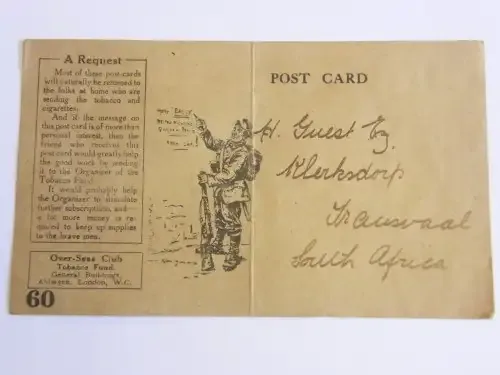 A Request
Most of these post-cards
will naturally be returned to
the folks at home who are
sending the tobacco and
cigarettes.
And if the message on
this post card is of more than
personal interest, then the
friend who receives this
post card would greatly help
the good work by sending
it to the Organiser of the
Tobacco Fund.
It would probably help
the Organiser to stimulate
further subscriptions, and
a lot more money is re-
quired to keep up supplies
to the brave men.
Over-Seas Club
Tobacco Fund.
General Buildings,
Aldwych, London, W.C.
60
POST CARD
H. Guest Esq.
Klerksdorp
Transvaal
South Africa